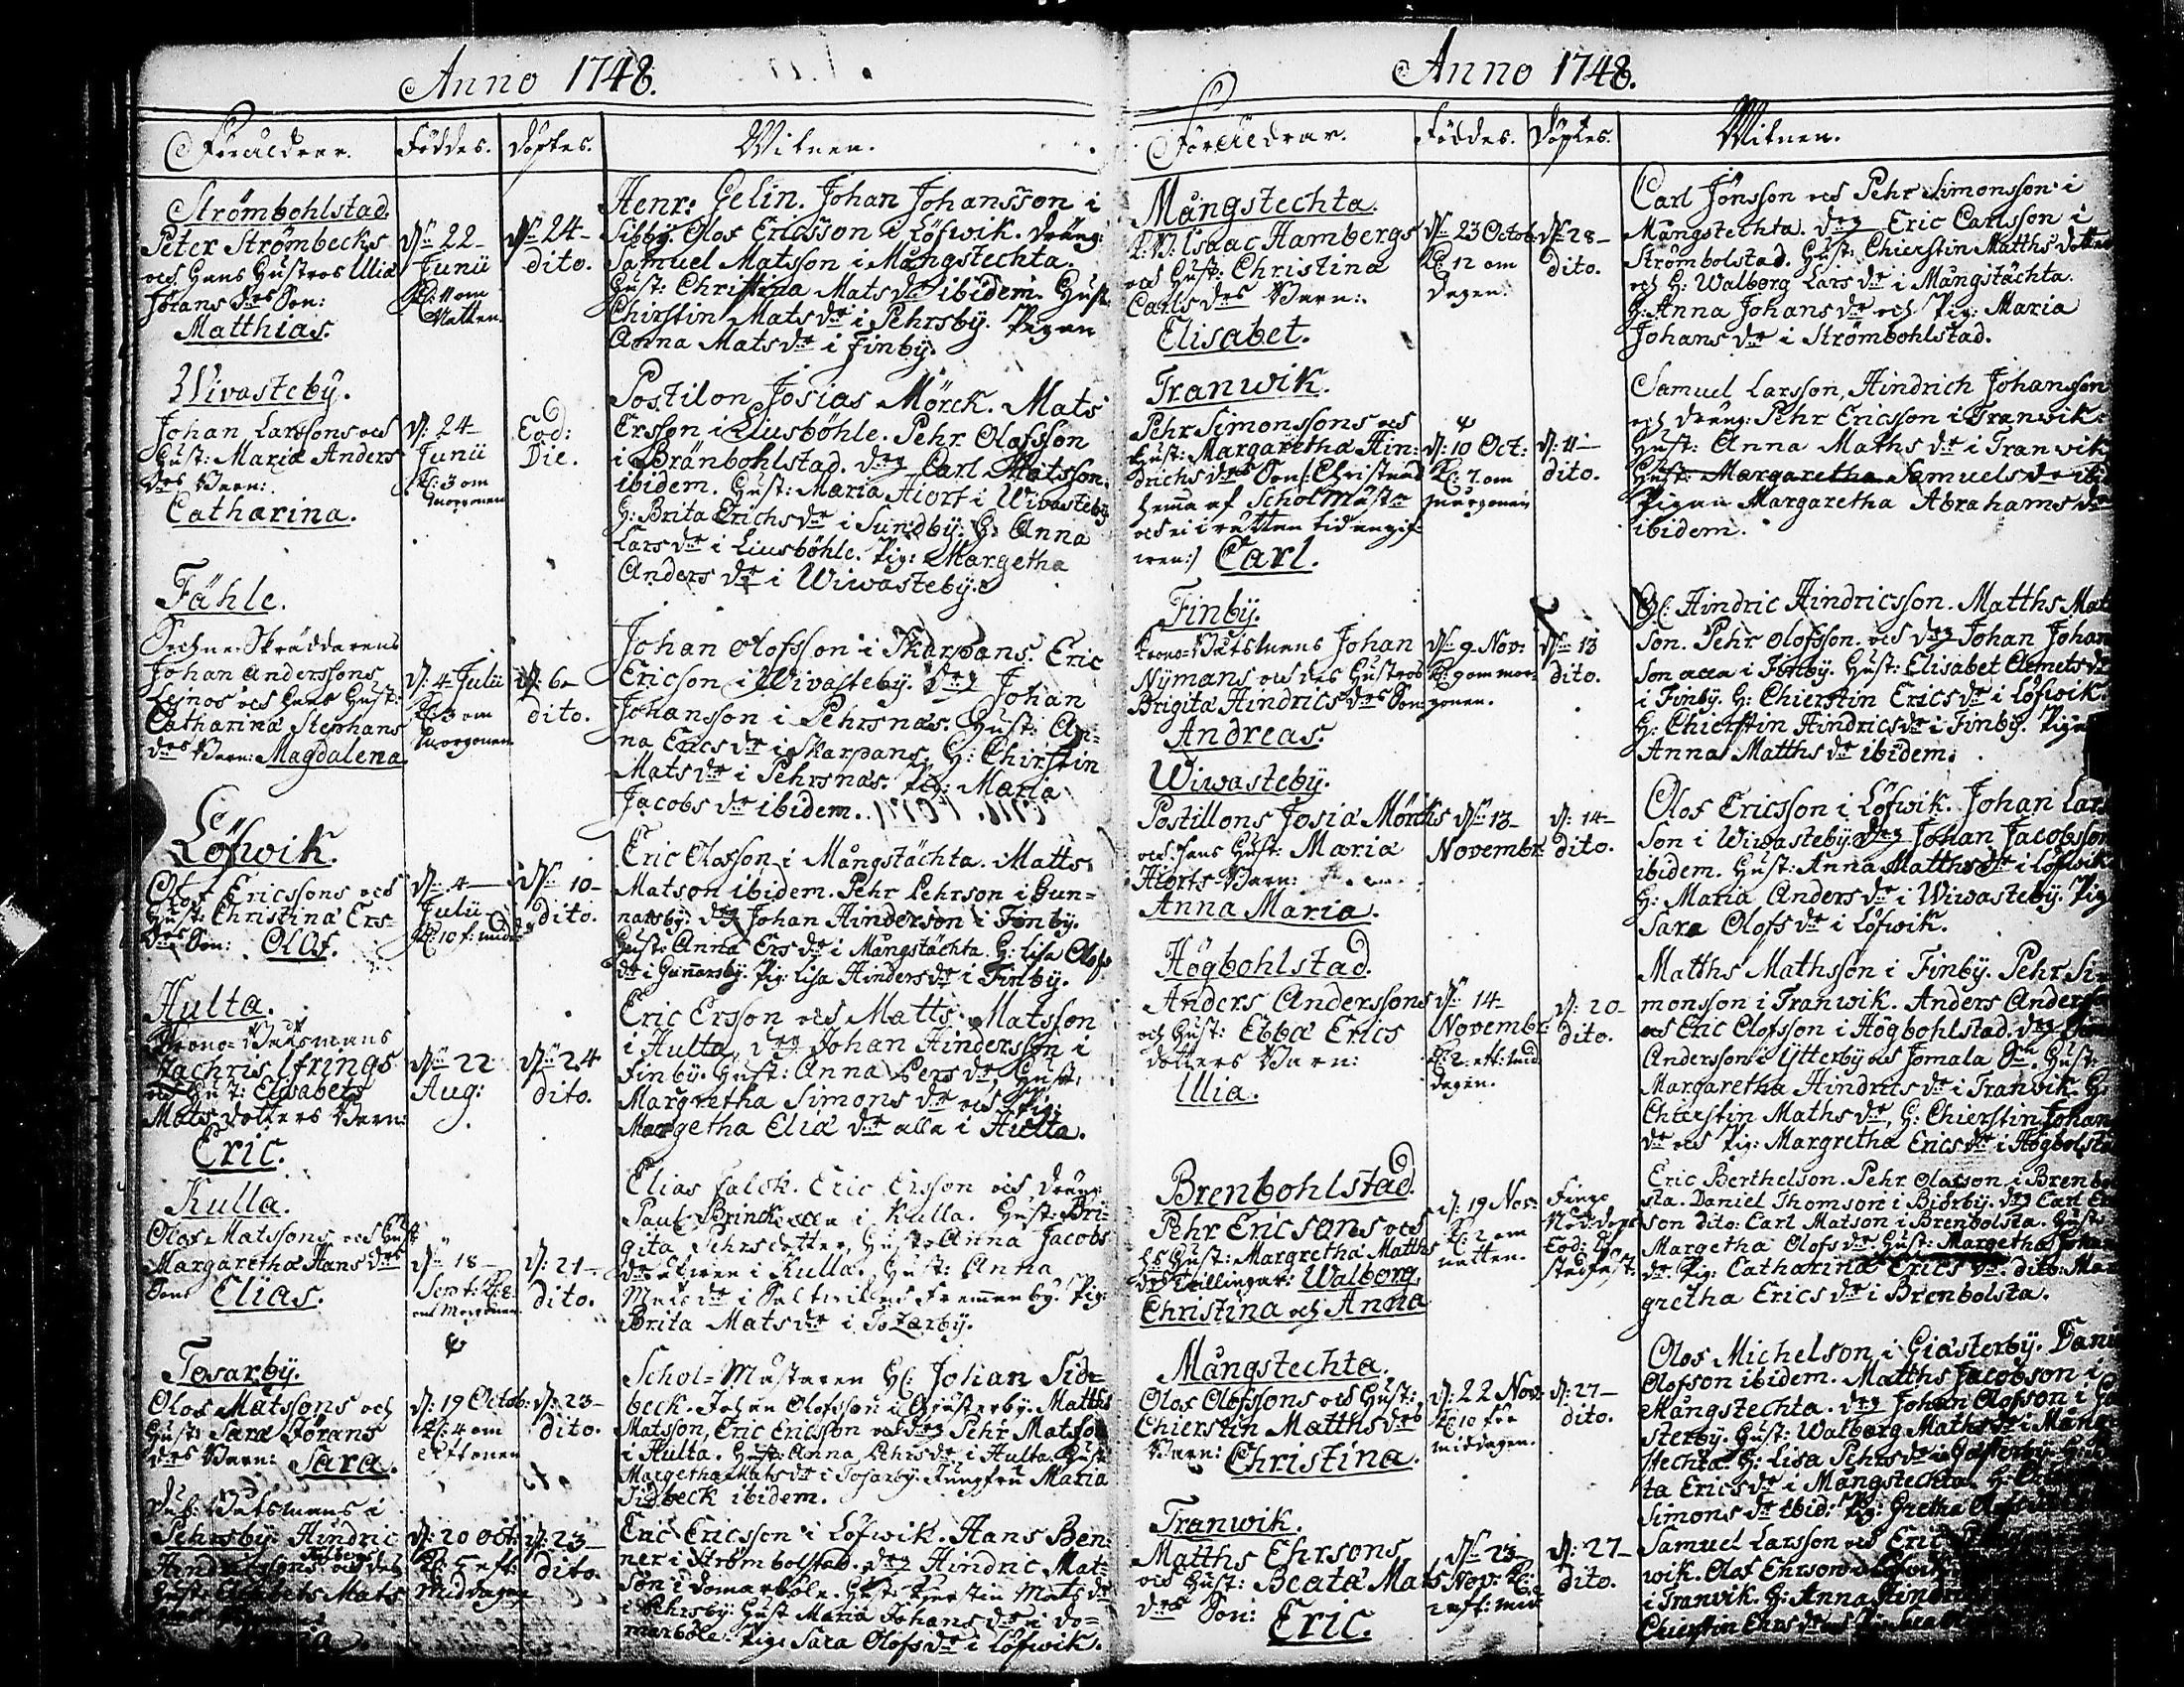 Anno 1748.
Föräldrar. Föddes. Döptes. Witnen.
Strömbohlstad.
Peter Strömbecks
och Hans Hustros Ulia
Jörans drs Son:
Matthias.
dn 22
Junii
Kl: 11 om
Natten.
dn 24
dito.
Henr: Gelin. Johan Johansson i
Sibby. Olof Ericsson i Löfwik. dräng:
Samuel Matsson i Mångstechta.
Hust: Christina Mats dr ibidem. Hust:
Chirstin Mats dr i Pehrsby. Pigan
Anna Mats dr i Finby.
Wivasteby.
Johan Larssons och
Hust: Maria Anders
drs Barn:
Catharina.
d: 24
Junii
Kl: 3 om
morgonen
Eod:
Die.
Postilon Josias Mörck. Mats
Ersson i Liusböhle. Pehr Olafsson
i Bränbohlstad. drg Carl Matsson
ibidem. Hust: Maria Hiort i Wivasteby
H: Brita Erichs dr i Sundby. H: Anna
Lars dr i Liusböhle. Pig: Margetha
Anders dr i Wiwasteby.
Fähle.
Sochne-Skräddarens
Johan Anderssons
Leinos och Hans Hust:
Catharina Stephans
drs Barn: Magdalena.
d: 4 Julii
Kl: 3 om
morgonen
d: 6
dito.
Johan Olofsson i Skarpans. Eric
Ericson i Wivasteby. drg Johan
Johansson i Pehrsnäs. Hust: An=
na Erics dr i Skarpans, H: Chirstin
Mats dr i Pehrsnäs. Pig: Maria
Jacobs dr ibidem.
Löfwik.
Olof Ericssons och
Hust: Christina Ers-
drs Son: Olof.
dn 4
Julii
Kl: 10 f: midd
dn 10
dito.
Eric Olasson i Mångstächta. Matts
Matson ibidem. Pehr Pehrson i Gun=
narsby. drg Johan Hinderson i Finby.
Hust: Anna Ers dr i Mångstächta. H: Lisa Olofs
dr i Gunnarsby. Pig: Lisa Hinders dr i Finby.
Hulta.
Krono-Båtsmans
Zachris Ifrings
och Hust: Elisabets
Mats dotters Barn:
Eric.
dn 22
Aug:
dn 24
dito.
Eric Ersson och Matts Matsson
i Hulta, drg Johan Hindersson i
Finby. Hust: Anna Pers dr, Hust:
Margretha Simons dr och Pig:
Margetha Elia dr alla i Hulta.
Kulla.
Olof Matssons och Hust
Margaretha Hans drs
Son: Elias.
dn 18
Sept: Kl: 8
om Morgonen
d: 21
dito.
Elias Falck. Eric Ersson och dräng
Paul Brinck alla i Kulla. Hust: Bri=
gita Pehrs dotter, Hust: Anna Jacobs
dr i Kulla. Hust: Anna
Mats dr i Saltwik Pig:
Brita Mats dr i Tozarby.
Tosarby.
Olof Matssons och
Hust: Sara Jörans
drs Barn: Sara.
d: 19 Octob:
Kl: 4 om
Aftonen
d: 23
dito.
Schol-Mästaren H: Johan Sid=
beck. Johan Olofsson i Giästerby. Matths
Matsson, Eric Ericson och drg Pehr Matsson
i Hulta. Hust: Anna Pehrs dr i Hulta. Hust:
Margetha Mats dr i Tosarby. Jungfru Maria
Sidbeck ibidem.
Båtsmans i
Pehrsby Hindric
och des
Hust: Mats
d: 20 Oct:
Kl: 5 eft:
middagen
d: 23
dito
Eric Ericsson i Löfwik. Hans Ben=
ner i Strömbolstad. drg Hindric Mat=
son i Domarböle. Hust: Kjerstin Mats dr
i Pehrsby. Hust: Maria Johans dr i Do=
marböle. Pig: Sara Olofs dr i Löfwik.
Anno 1748.
Föräldrar. Föddes. Döptes. Witnen.
Mångstechta.
Isaac Hambergs
och Hust: Christina
Carls drs Barn:
Elisabet.
dn 23 Octob:
Kl: 12 om
dagen:
dn 28
dito.
Carl Jönsson och Pehr Simonsson i
Mångstechta. drg Eric Carlsson i
Strömbolstad. Hust: Chierstin Matths dotter
och H: Walborg Lars dr i Mångstächta.
H: Anna Johans dr och Pig: Maria
Johans dr i Strömbohlstad.
Tranwik.
Pehr Simonssons och
Hust: Margaretha Hin-
drichs drs Son (: Christnad
hemma af Scholmästr
och ei i rättan tid angif-
wen:) Carl.
d: 10 Oct:
Kl: 7 om
morgonen
d: 11
dito.
Samuel Larsson, Hindrich Johansson
och dräng: Pehr Ericsson i Tranwik
Hust: Anna Maths dr i Tranwik
Hust: Margaretha Samuels dr ibid
Pigan Margaretha Abrahams dr
ibidem.
Finby.
Krono-Båtsmans Johan
Nymans och des Hustros
Brigita Hindrics drs Son:
Andreas.
dn 9 Nov:
Kl: 9 om mor-
gonen.
dn 13
dito.
H: Hindric Hindricsson. Matths Mat
son. Pehr Olofsson. och drg Johan Johan
son alla i Finby. Hust: Elisabet Clemets dr
i Finby. H: Chierstin Erics dr i Löfwik.
H: Chierstin Hindrics dr i Finby. Pigan
Anna Matths dr ibidem.
Wiwasteby.
Postillons Josia Mörcks
och hans Hust: Maria
Hiorts Barn:
Anna Maria.
dn 13
Novembr:
d: 14
dito.
Olof Ericsson i Löfwik. Johan Lars
son i Wiwasteby. drg Johan Jacobsson
ibidem. Hust: Anna Matths dr i Löfwik.
H: Maria Anders dr i Wiwasteby. Pig
Sara Olofs dr i Löfwik.
Högbohlstad.
Anders Anderssons
och Hust: Ebba Erics
dotters Barn:
Ulia.
dn 14
Novembr:
Kl: 2 eft: mid
dagen.
d: 20
dito.
Matths Mathsson i Finby. Pehr Si-
monsson i Tranwik. Anders Anders
och Eric Olofsson i Högbohlstad. drg
Andersson i Ytterby och Jomala Sn. Hust:
Margaretha Hindrics dr i Tranwik. H:
Chierstin Maths dr, H: Chierstin Johans
dr och Pig: Margretha Erics dr i Högbolsta
Brenbohlstad.
Pehr Ericsons och
hs Hust: Margretha Matths
drs Trillingar: Walborg,
Christina och Anna
d: 19 Nov:
Kl: 2 om
natten.
Finge
Nöddop
Eod: D:
stadfäst:
Eric Berthelson. Pehr Olarson i Brenbol
sta. Daniel Thomson i Biörby. drg Carl Er
son dito. Carl Matson i Brenbolsta. Hust:
Margetha Olofs dr. Hust: Margetha Johans
dr. Pig: Catharina Erics dr dito: Mar
gretha Erics dr i Brenbolsta.
Mångstechta.
Olof Olofssons och Hust:
Chierstin Matths drs
Barn: Christina.
d: 22 Nov:
Kl: 10 för
middagen.
d: 27
dito.
Olof Michelson i Giästerby. Dani
Olofson ibidem. Matths Jacobson i
Mångstechta. drg Johan Olofson i Gä
sterby. Hust: Walborg Maths dr i Mång
stechta. H: Lisa Pehrs dr i Gästerby. H:
ta Erics dr i Mångstechta. H:
Simons dr ibid: Pig: Gretha
Tranwik.
Matths Ehrsons
och Hust: Beata Mats
drs Son: Eric.
dn 23
Nov: Kl:
2 eft: mid
d: 27
dito.
Samuel Larsson och Eric
wik. Olof Ehrson i Löfwik
i Tranwik. H: Anna Hind
Chierstin Ehrs dr